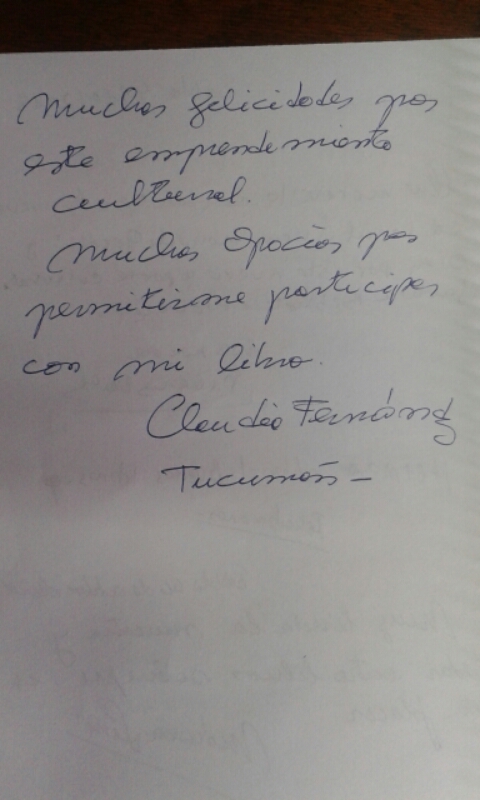 Muchas felicidades por
este emprendimiento
cultural.
Muchas gracias por
permitirme participar
con mi libro.
Claudia Fernández
Tucumán -